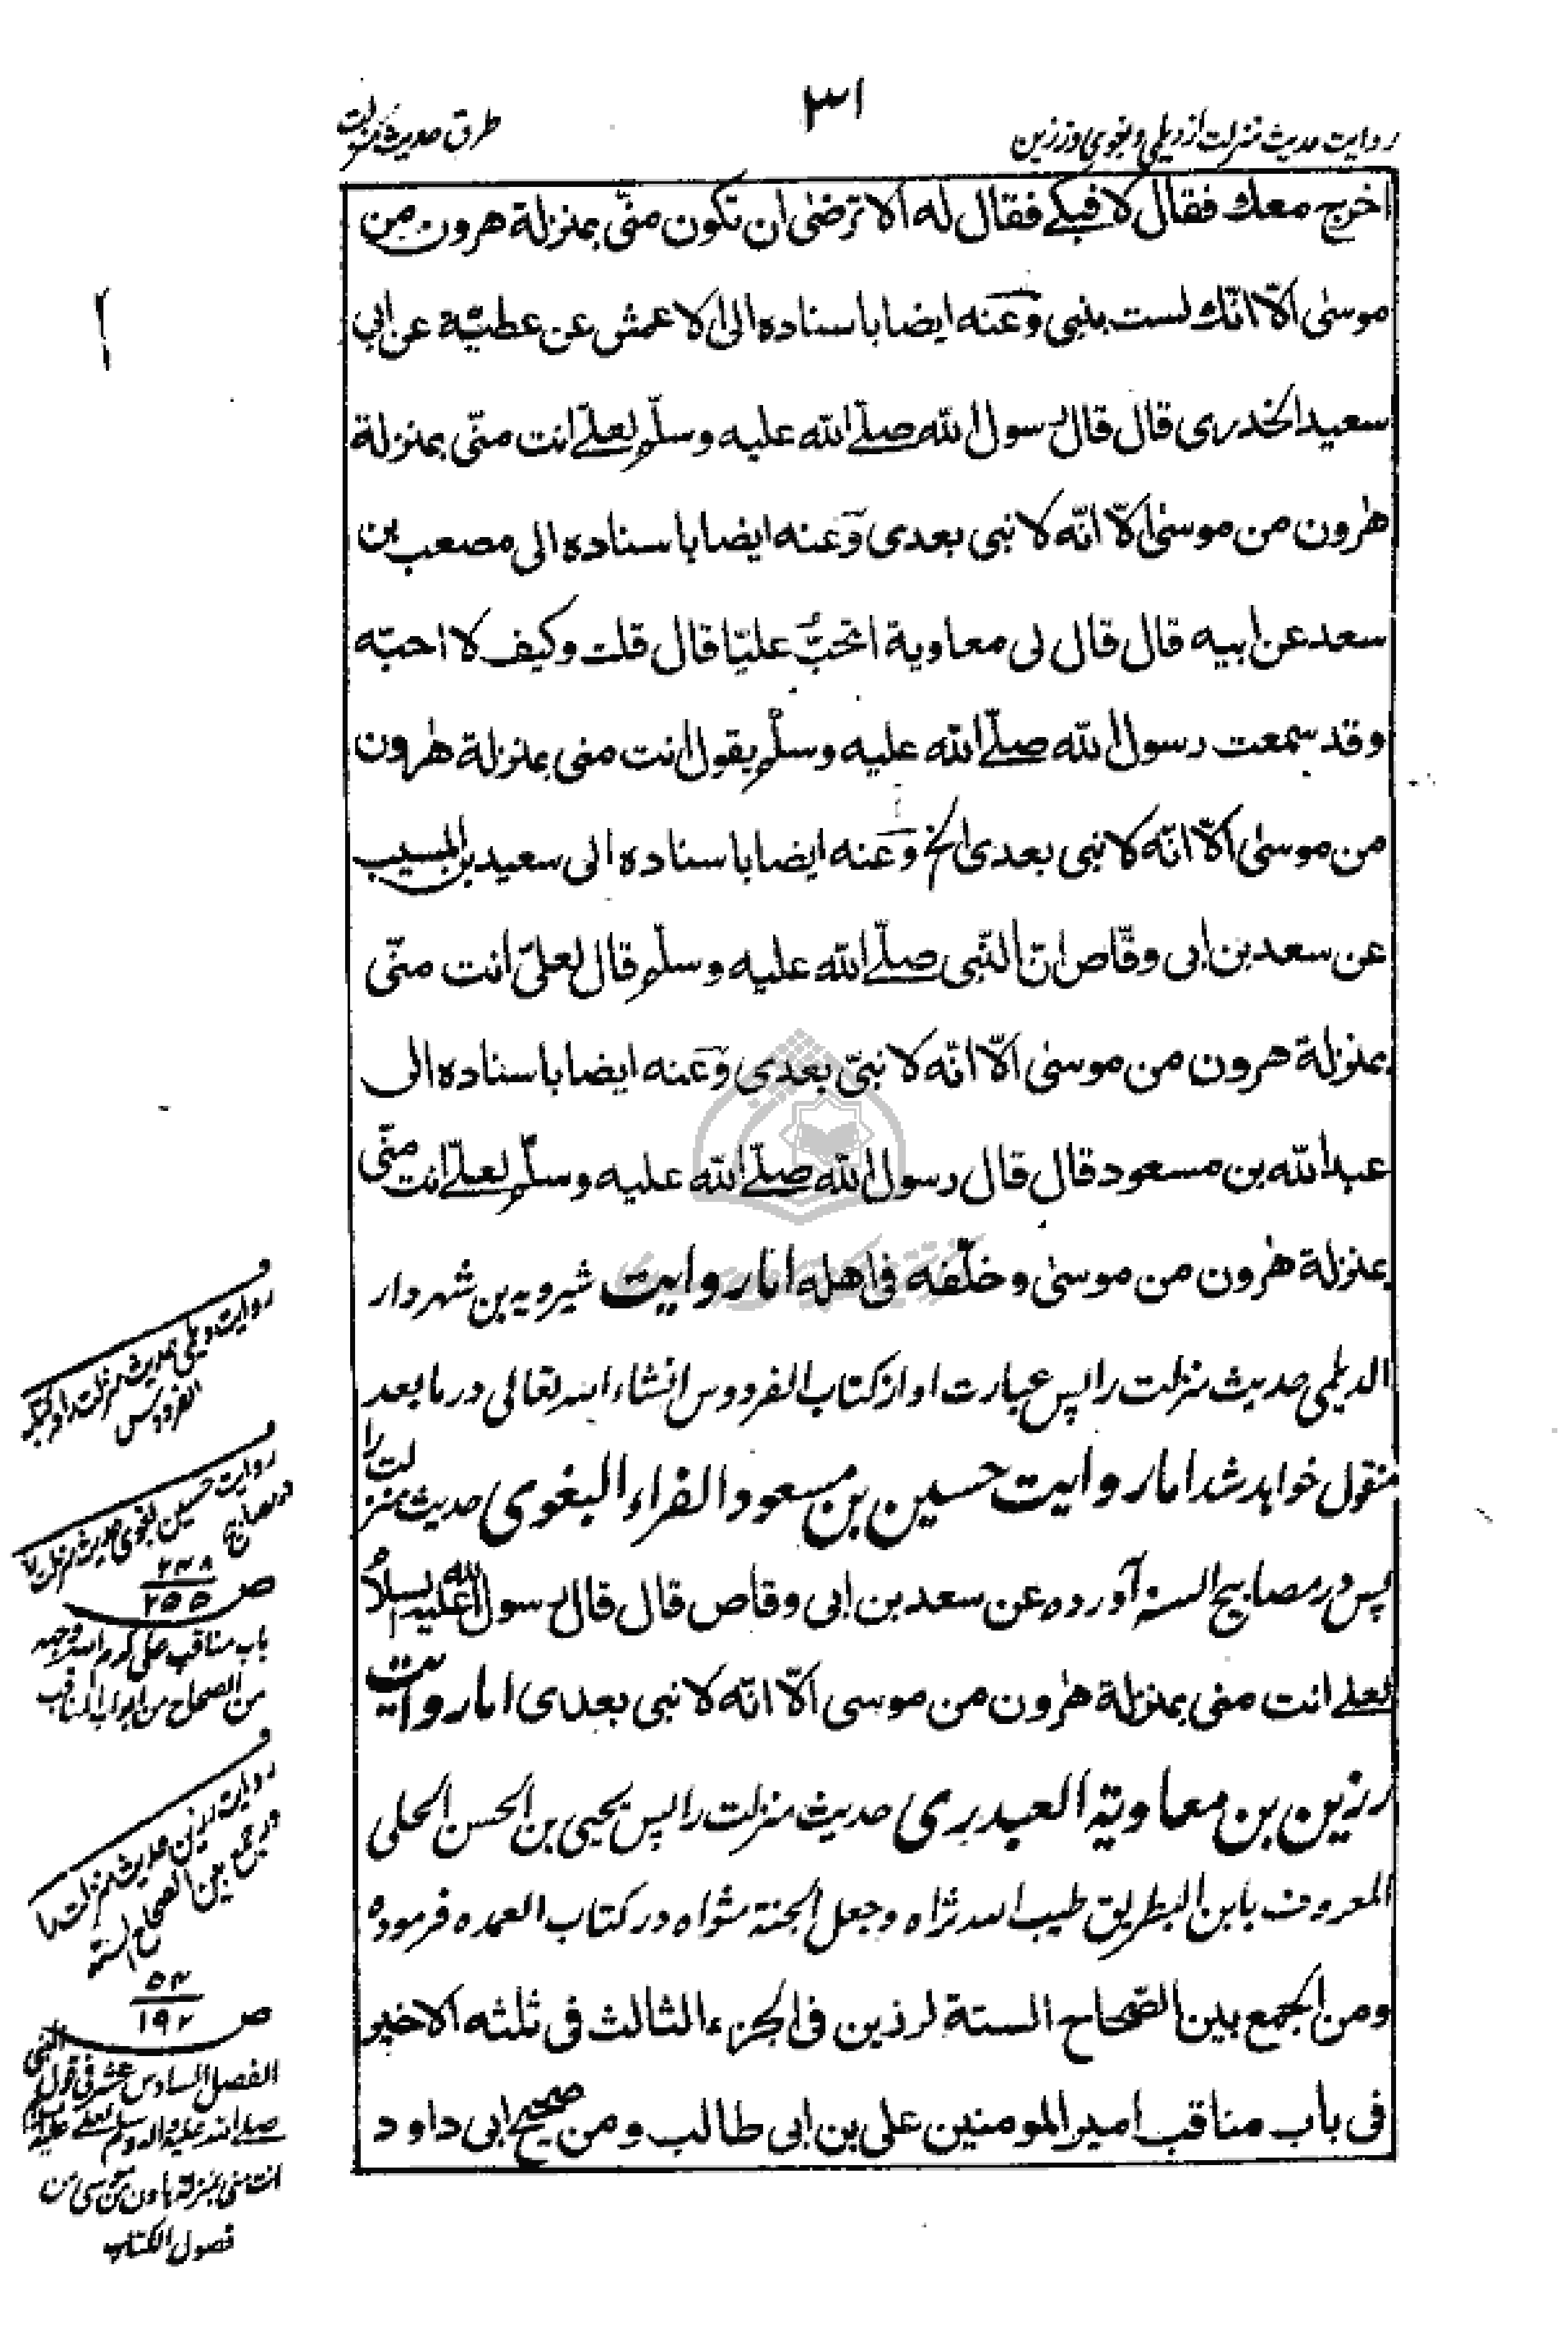 روایت حدیث منزلت از دیلمی و بغوی و رزین
۳۱
طرق حدیث منزلت
اخرج معك فقال لا فبكى فقال له الا ترضىٰ ان تكون منّى بمنزلة هرون من
موسىٰ الّا انّك لست بنبى وعنه ايضا باسناده الى الاعمش عن عطيّة عن ابى
سعيد الخدرى قال قال رسول الله صلّے الله عليه وسلّم لعلىّ انت منّى بمنزلة
هٰرون من موسىٰ الّا انّه لا نبى بعدى وعنه ايضا باسناده الى مصعب بن
سعد عن ابيه قال قال لى معاوية اتحبُّ عليّا قال قلت وكيف لا احبّه
وقد سمعت رسول الله صلّے الله عليه وسلّم يقول انت منى بمنزلة هٰرون
من موسىٰ الّا انّه لا نبى بعدى الخ وعنه ايضا باسناده الى سعيد بن المسيب
عن سعد بن ابى وقّاص انّ النّبى صلّے الله عليه وسلّم قال لعلىّ انت منّى
بمنزلة هرون من موسىٰ الّا انّه لا نبىّ بعدى وعنه ايضا باسناده الى
عبد الله بن مسعود قال قال رسول الله صلّے الله عليه وسلّم لعلىّ انت منّى
بمنزلة هٰرون من موسىٰ وخلّفه فى اهله اما روایت شیرویه بن شهردار
الدیلمی حدیث منزلت را پس عبارت او از کتاب الفردوس انشاء الله تعالی در ما بعد
منقول خواهد شد اما روایت حسین بن مسعود الفراء البغوی حدیث منزلت را
پس در مصابیح السنه آورده عن سعد بن ابى وقاص قال قال رسول الله عليه السلام
لعلى انت منى بمنزلة هٰرون من موسى الّا انّه لا نبى بعدى اما روایت
رزین بن معاویة العبدری حدیث منزلت را پس یحیی بن الحسن الحلی
المعروف بابن البطریق طیب الله ثراه وجعل الجنة مثواه در کتاب العمده فرموده
ومن الجمع بين الصّحاح الستة لرزين فى الجزء الثالث فى ثلثه الاخير
فى باب مناقب امير المومنين على بن ابى طالب ومن صحيح ابى داود
روایت دیلمی حدیث منزلت را در کتاب
الفردوس
روایت حسین بغوی حدیث منزلت را
در مصابیح
ص ۲۴۸
۲۵۵
باب مناقب علی کرم الله وجهه
من الصحاح من ابواب المناقب
روایت رزین حدیث منزلت را
در جمع بین الصحاح الستة
ص ۵۴
۱۹۲
الفصل السادس عشر فی قول النبی
صلے الله علیه واله وسلم لعلی علیه السلام
انت منی بمنزلة هارون من موسی من
فصول الکتاب